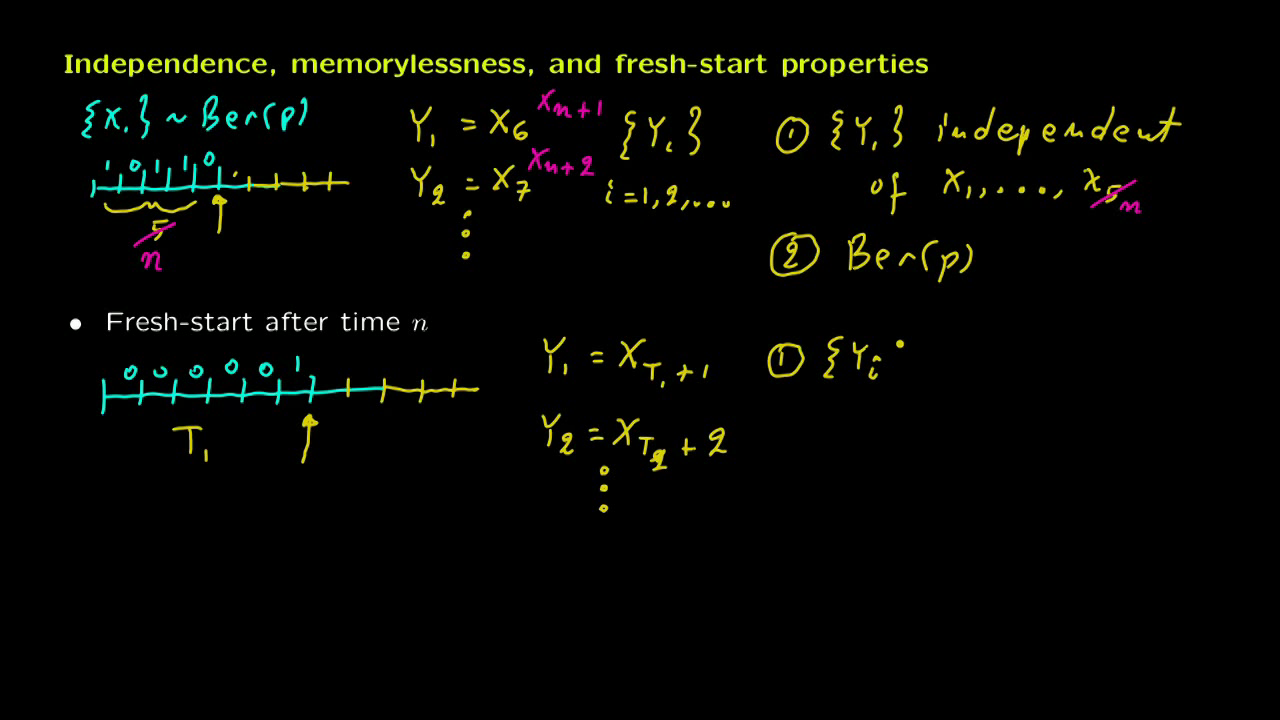 Independence, memorylessness, and fresh-start properties
{X.} ~ Ber(p)
1 0 1 1 0
5
n
Y₁ = X₆ Xₙ₊₁
Y₂ = X₇ Xₙ₊₂
{Yᵢ}
i = 1, 2, ...
① {Yᵢ} independent
of X₁, ..., X₅ n
② Ber(p)
• Fresh-start after time n
0 0 0 0 0 1
T₁
Y₁ = X_{T₁ + 1}
Y₂ = X_{T₂ + 2}
① {Yᵢ